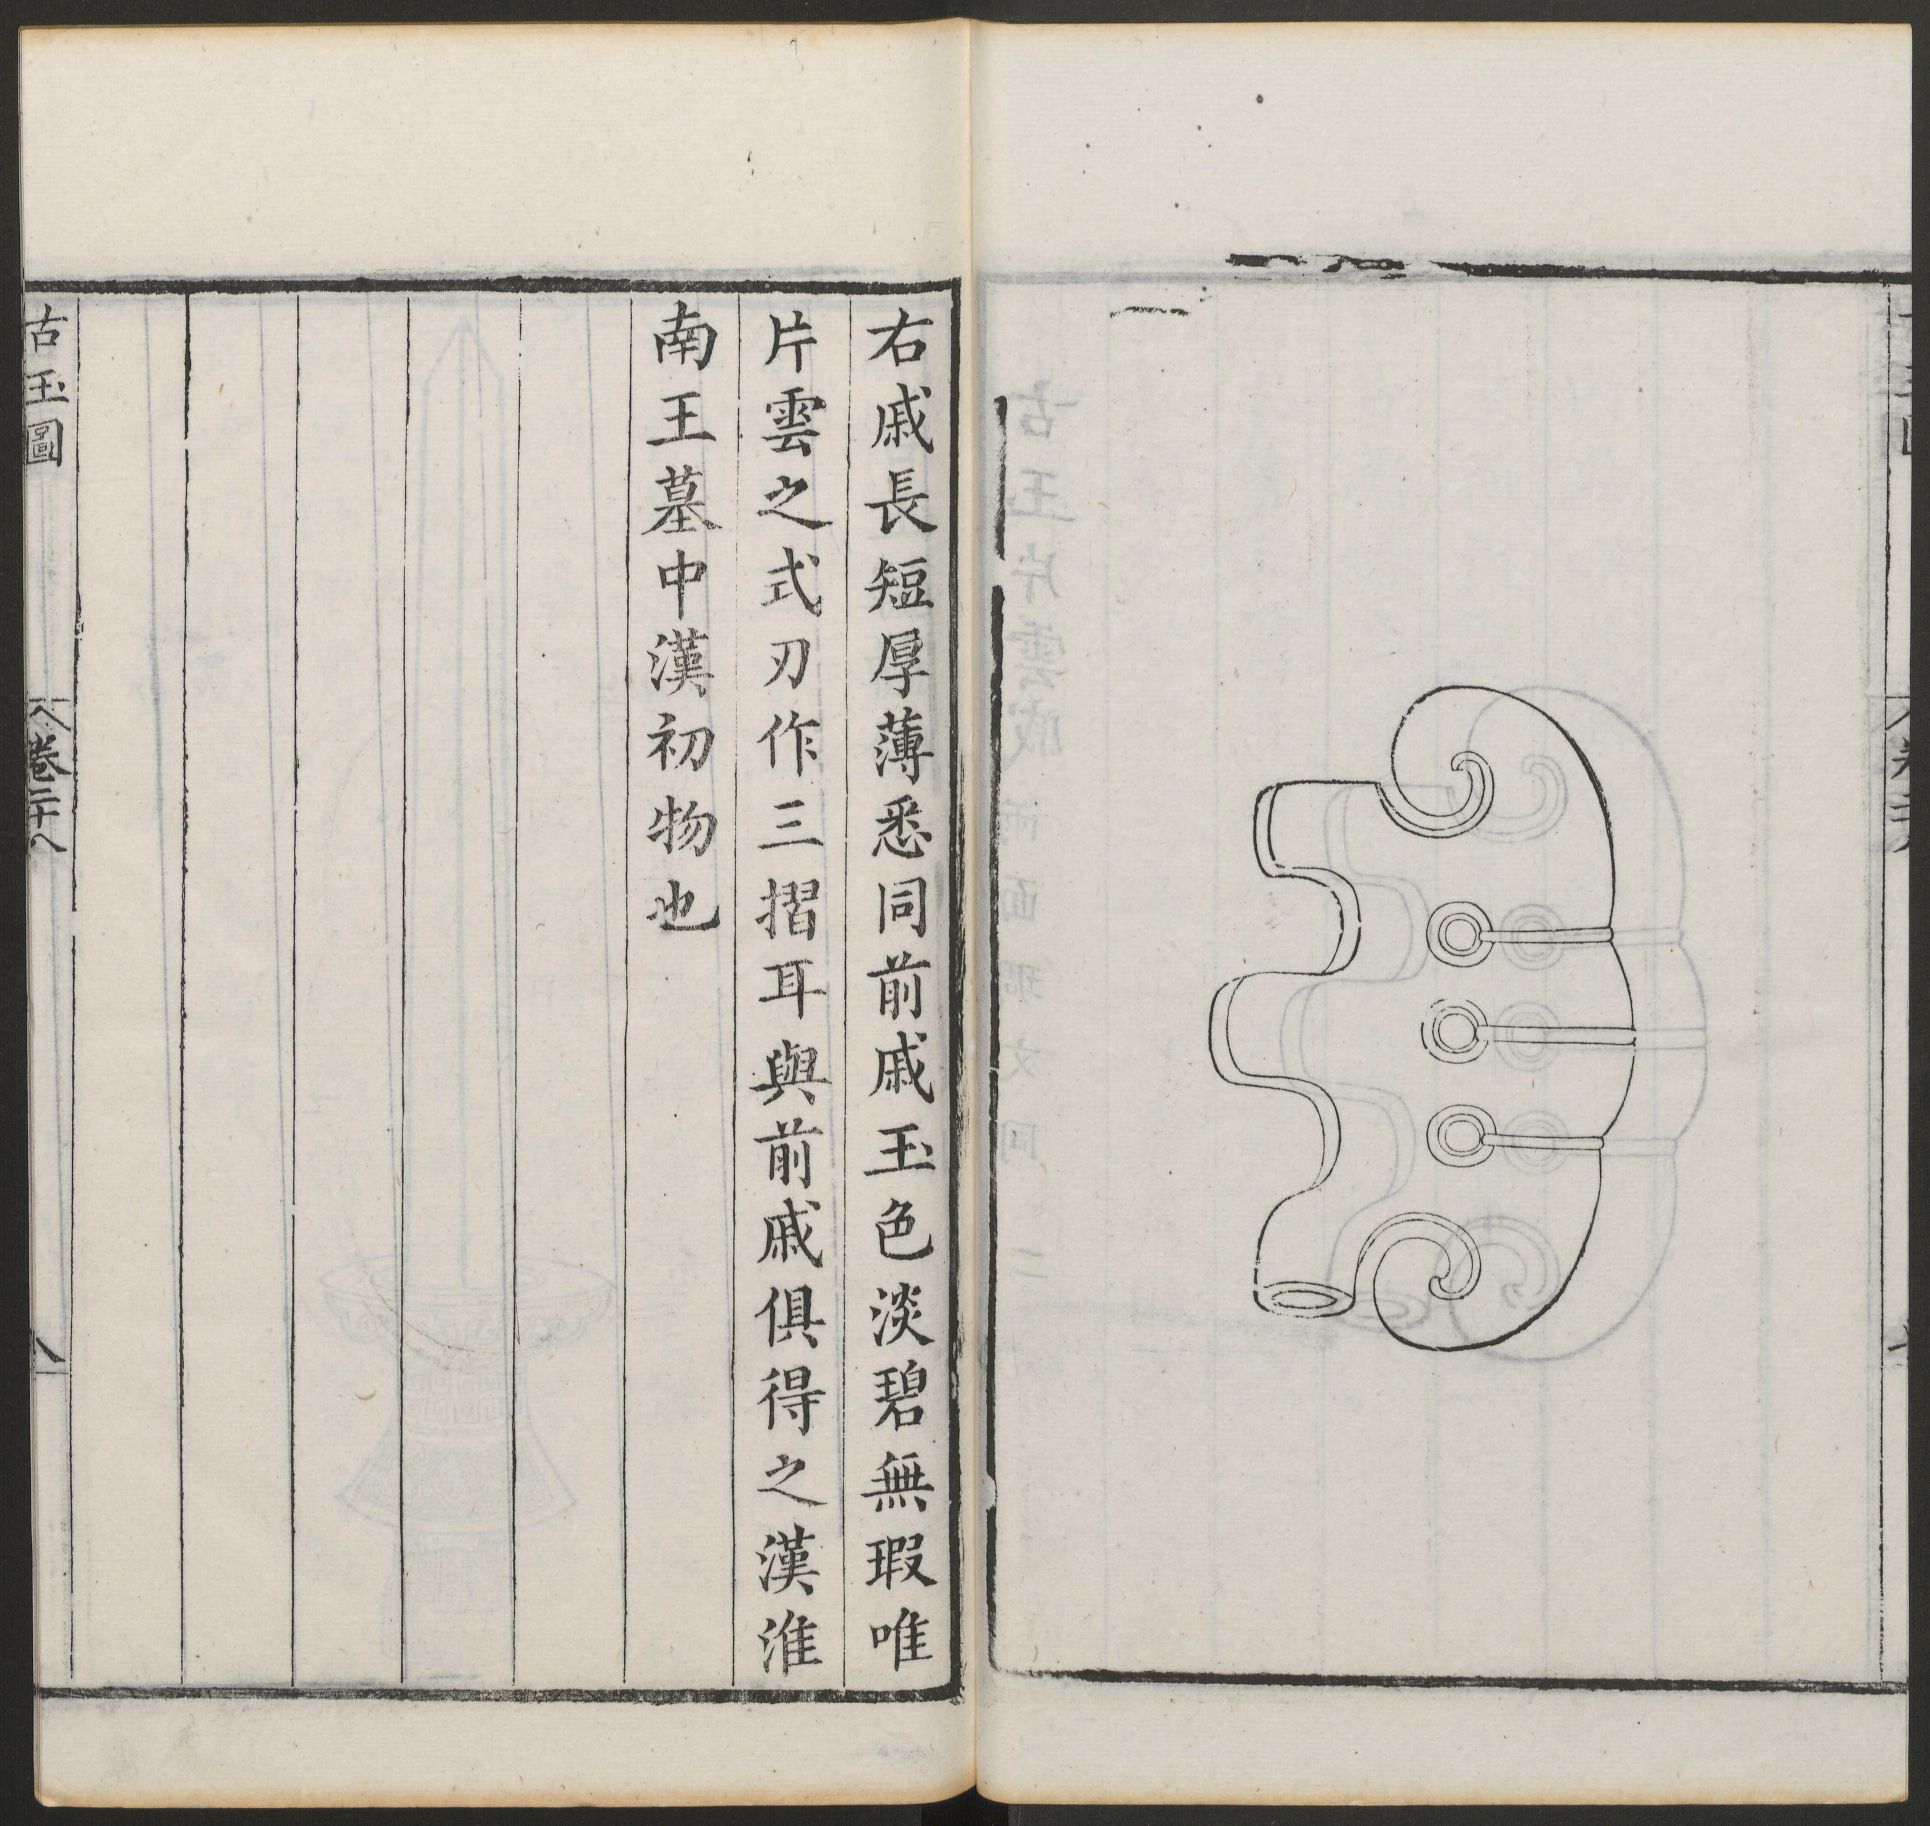 右戚長短厚薄悉同前戚玉色淡碧無瑕唯
片雲之式刃作三摺耳與前戚俱得之漢淮
南王墓中漢初物也
古玉圖
卷二十八
八